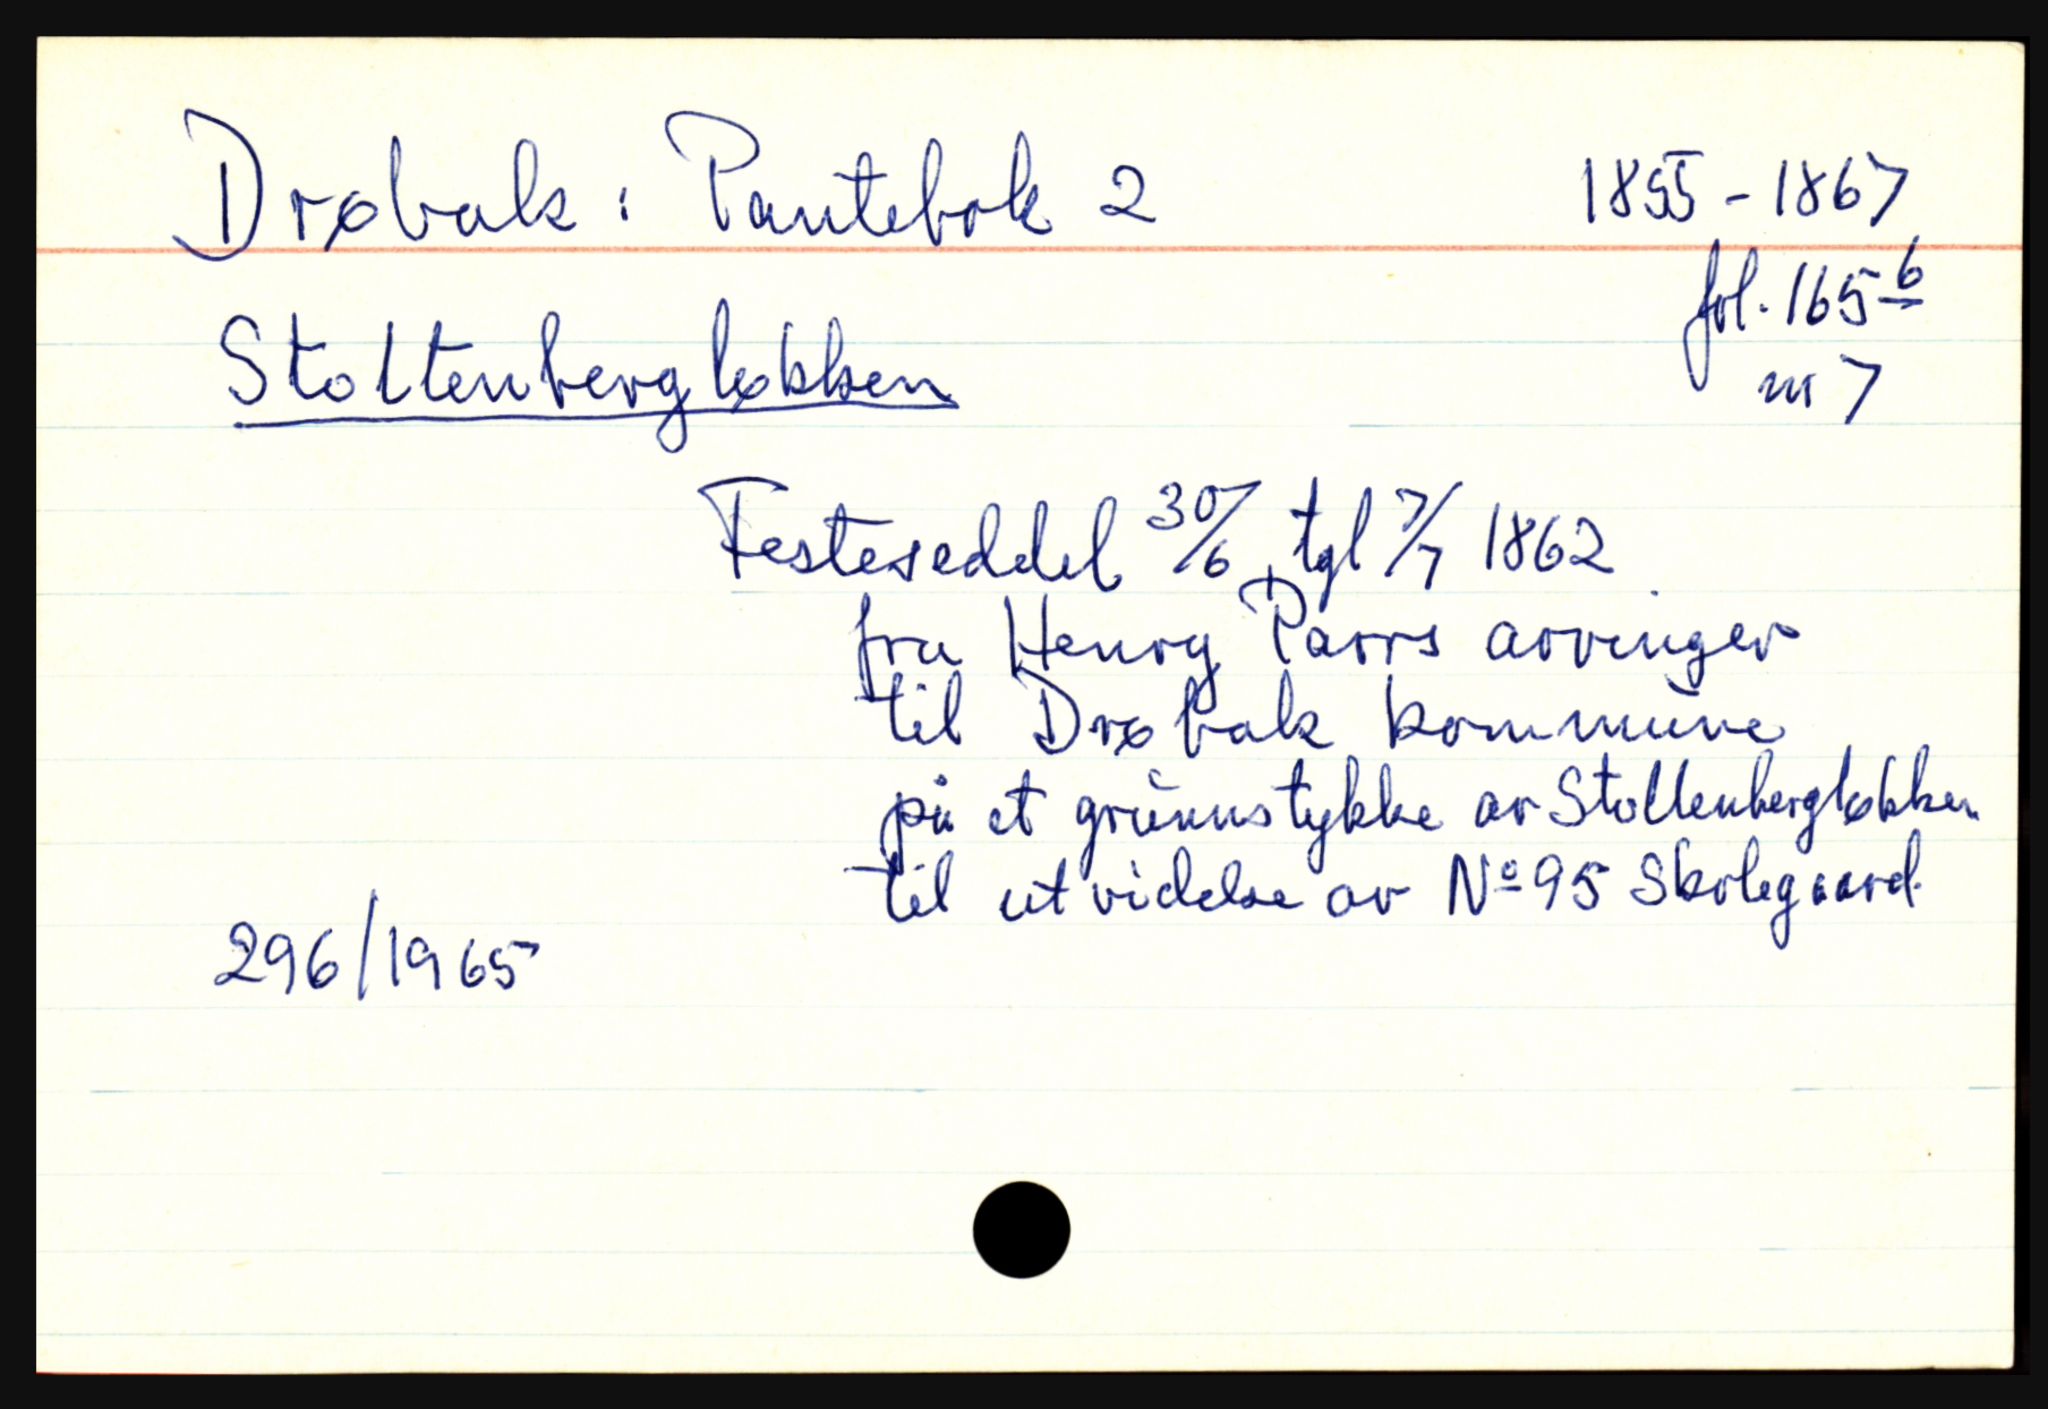 Drøbak: Pantebok 2 1855-1867
fol. 165b
Stoltenbergløkken nr 7
Festeseddel 30/6 tgl 7/7 1862
fra Henry Parrs arvinger
til Drøbak kommune
på et grunnstykke av Stoltenbergløkken
til utvidelse av No 95 Skolegaard.
296/1965